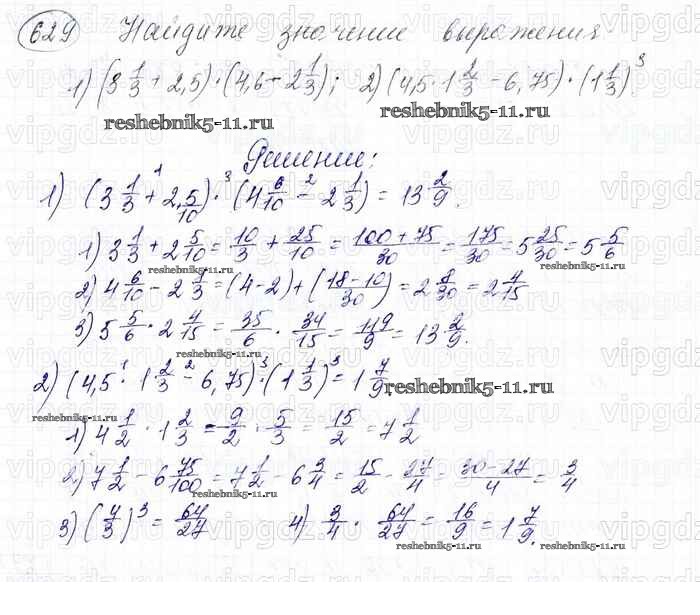 629 Найдите значение выражения
1) (3 1/3 + 2,5) · (4,6 − 2 1/3); 2) (4,5 · 1 2/3 − 6,75) · (1 1/3)³
reshebnik5-11.ru
Решение:
1) (3 1/3 +¹ 2, 5/10) ·³ (4 6/10 −² 2 1/3) = 13 2/9.
1) 3 1/3 + 2 5/10 = 10/3 + 25/10 = (100 + 75)/30 = 175/30 = 5 25/30 = 5 5/6
reshebnik5-11.ru
2) 4 6/10 − 2 1/3 = (4 − 2) + ((18 − 10)/30) = 2 8/30 = 2 4/15
3) 5 5/6 · 2 4/15 = 35/6 · 34/15 = 119/9 = 13 2/9.
2) (4,5 ·¹ 1 2/3 −² 6,75) ·³ (1 1/3)³ = 1 7/9.
reshebnik5-11.ru
1) 4 1/2 · 1 2/3 = 9/2 · 5/3 = 15/2 = 7 1/2
2) 7 1/2 − 6 75/100 = 7 1/2 − 6 3/4 = 15/2 − 27/4 = (30 − 27)/4 = 3/4
reshebnik5-11.ru
3) (4/3)³ = 64/27 4) 3/4 · 64/27 = 16/9 = 1 7/9.
reshebnik5-11.ru